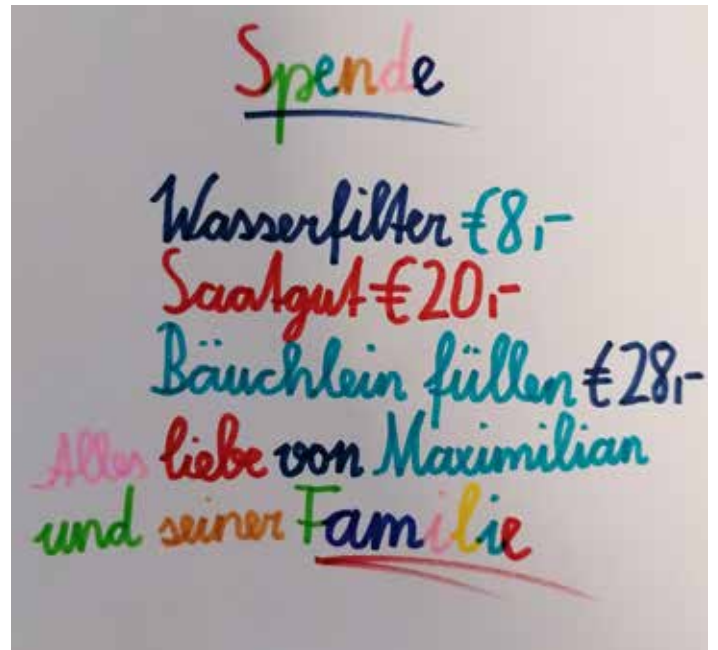 Spende
Wasserfilter €8,-
Saatgut €20,-
Bäuchlein füllen €28,-
Alles liebe von Maximilian
und seiner Familie